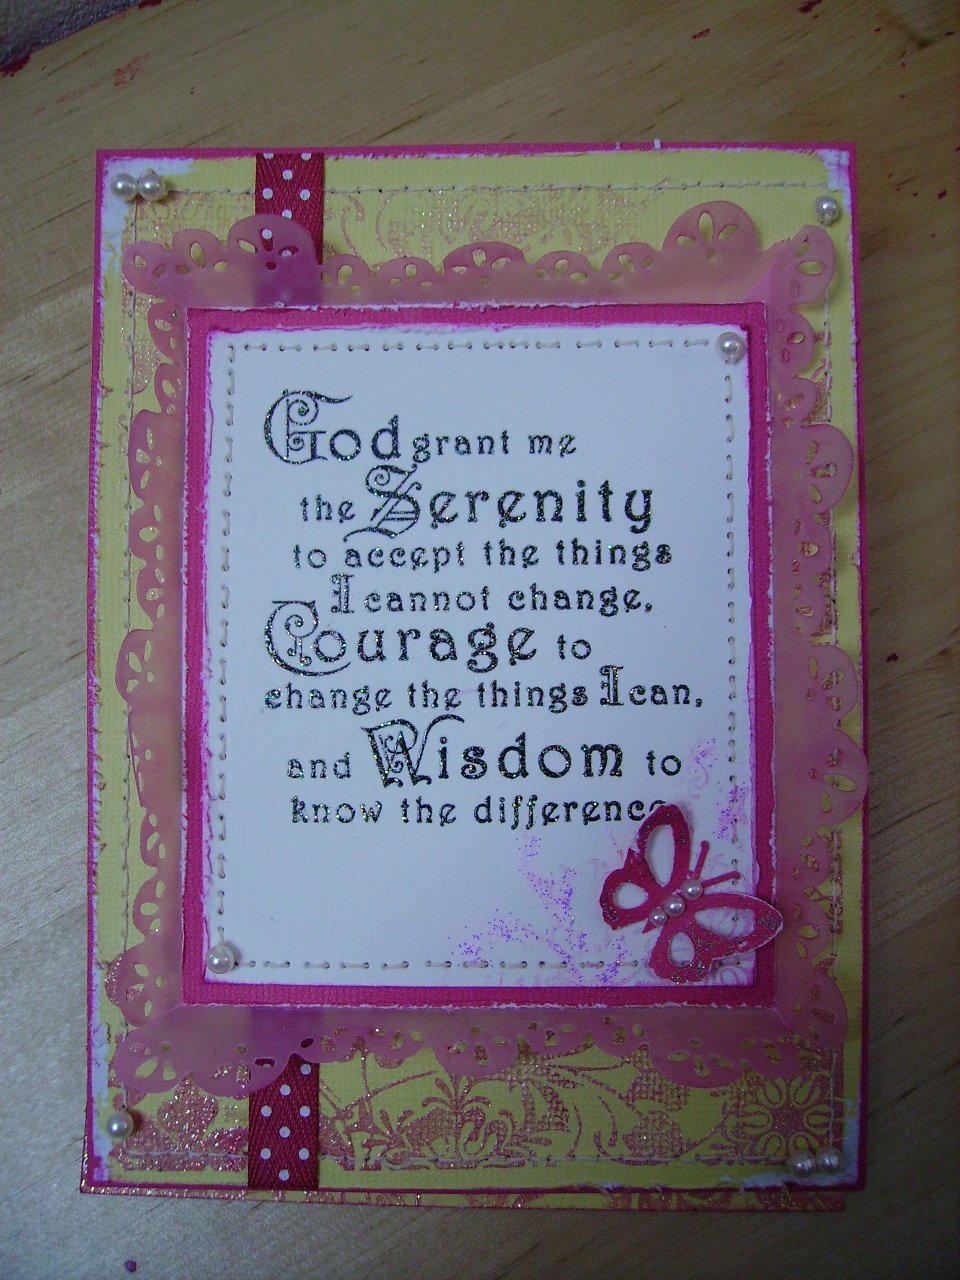 God grant me
the Serenity
to accept the things
I cannot change,
Courage to
change the things I can,
and Wisdom to
know the difference